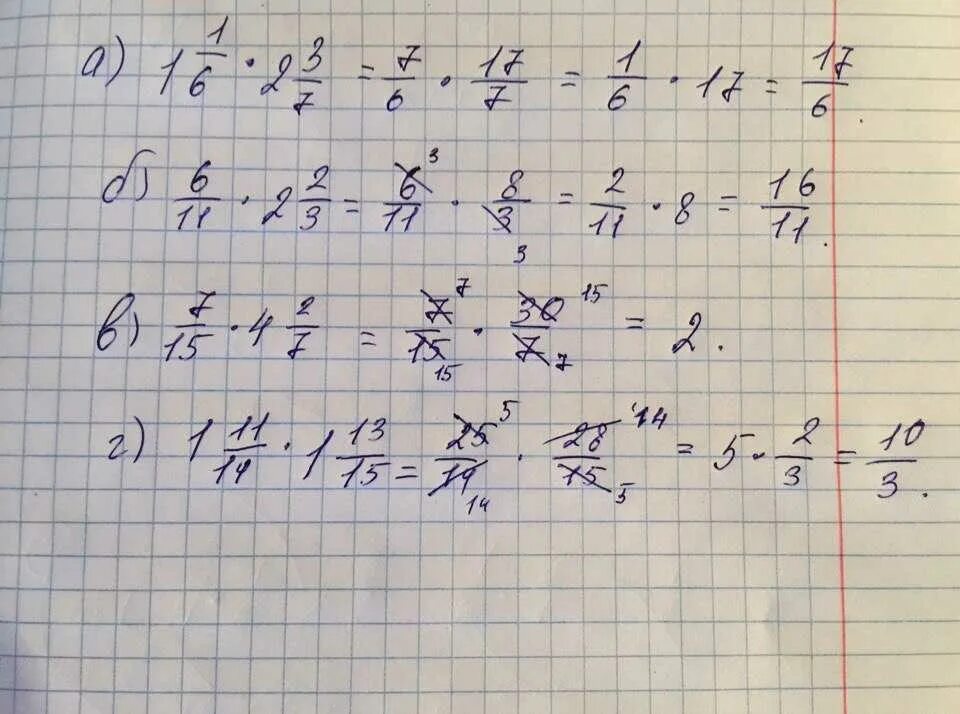 а) 1 1/6 · 2 3/7 = 7/6 · 17/7 = 1/6 · 17 = 17/6.
б) 6/11 · 2 2/3 = 6/11 3 · 8/3 3 = 2/11 · 8 = 16/11.
в) 7/15 · 4 2/7 = 7/15 7 15 · 30/7 15 7 = 2.
г) 1 11/14 · 1 13/15 = 25/14 5 14 · 28/15 14 5 = 5 · 2/3 = 10/3.